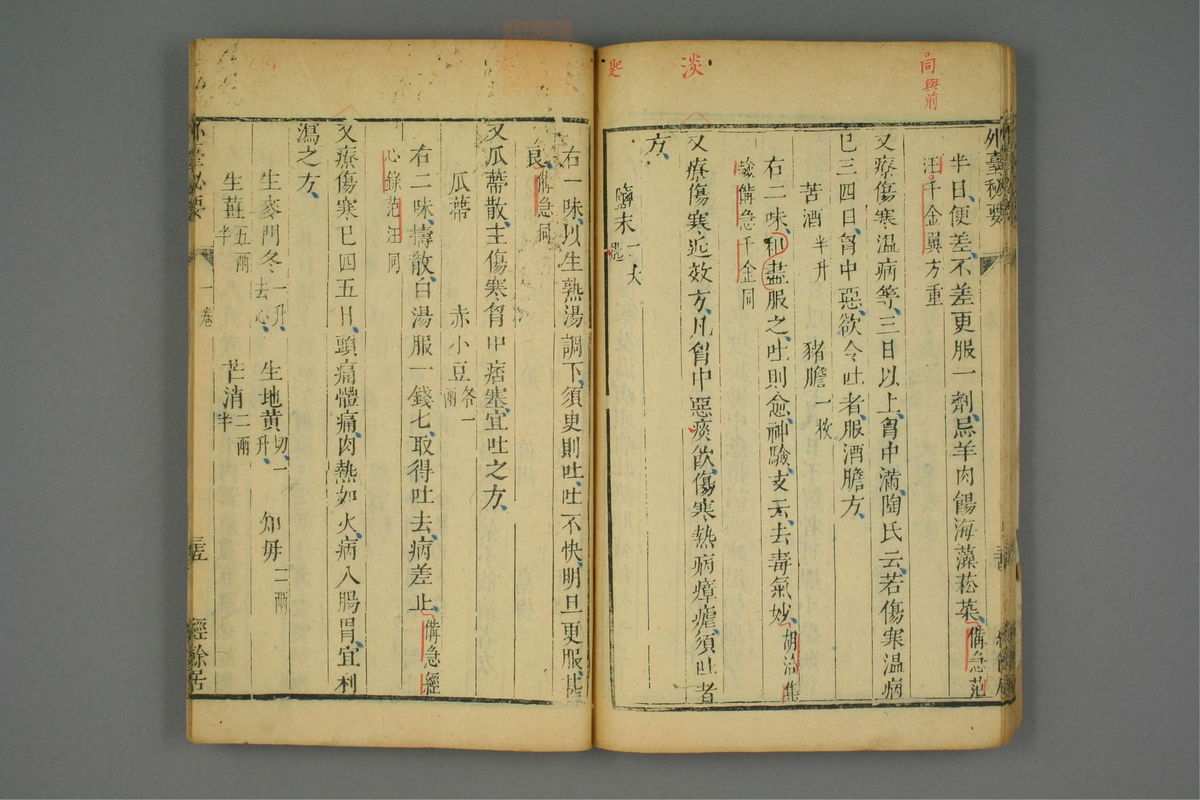 同與前
淡
匙
外臺秘要
半日便差不差更服一劑忌羊肉餳海藻菘菜備急范
汪千金翼方重
又療傷寒溫病等三日以上胷中滿陶氏云若傷寒溫病
已三四日胷中惡欲令吐者服酒膽方
苦酒半升 豬膽一枚
右二味和盡服之吐則愈神驗支云去毒氣妙胡洽集
驗備急千金同
又療傷寒近效方凡胷中惡痰飲傷寒熱病瘴瘧須吐者
方
鹽末一大匙
右一味以生熟湯調下須臾則吐吐不快明旦更服甚
良備急同
又瓜蔕散主傷寒胷中痞塞宜吐之方
瓜蔕 赤小豆各一兩
右二味擣散白湯服一錢匕取得吐去病差止備急經
心錄范汪同
又療傷寒已四五日頭痛體痛肉熱如火病入腸胃宜利
瀉之方
生麥門冬一升去心 生地黃切一升 知母二兩
生薑五兩半 芒消二兩半
外臺祕要
一卷
經餘居